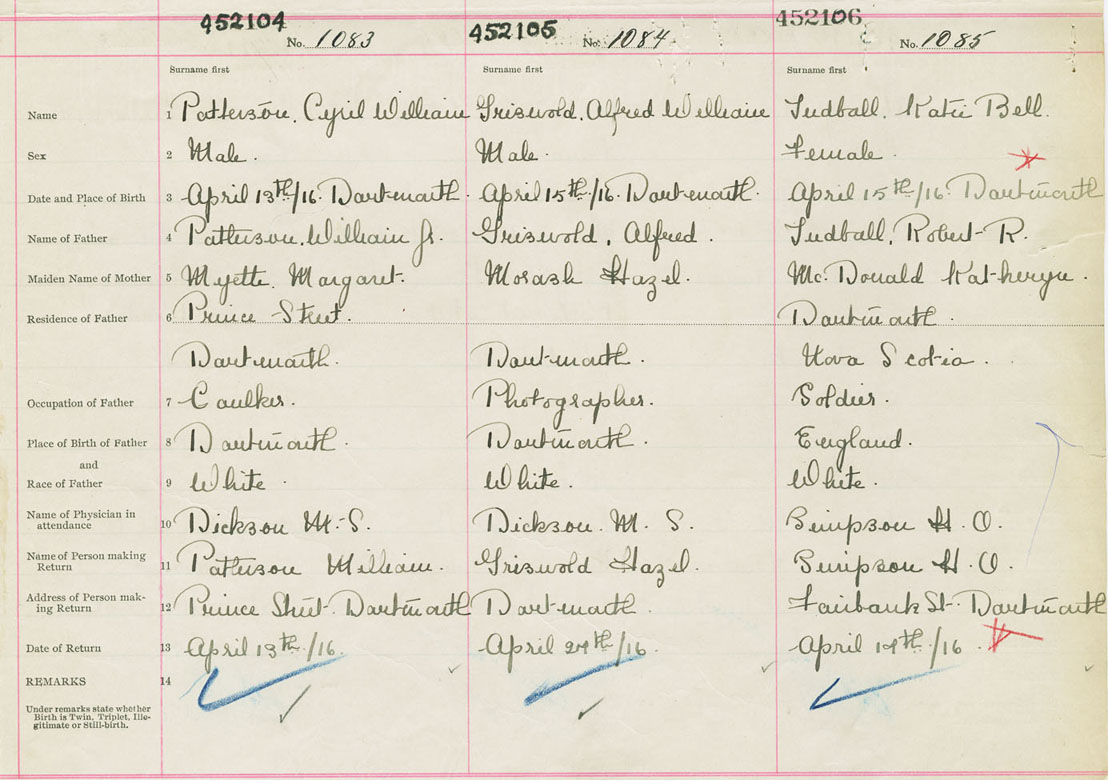 452104 452105 452106
No. 1083 No. 1084 No. 1085
Surname first Surname first Surname first
Name 1 Patterson, Cyril William Griswold, Alfred William Tudball, Katie Bell.
Sex 2 Male. Male. Female.
Date and Place of Birth 3 April 13th/16. Dartmouth. April 15th/16. Dartmouth. April 15th/16. Dartmouth
Name of Father 4 Patterson, William Jr. Griswold, Alfred. Tudball, Robert R.
Maiden Name of Mother 5 Myette, Margaret. Morash Hazel. Mc.Donald Katheryn.
Residence of Father 6 Prince Street. Dartmouth.
Dartmouth. Dartmouth. Nova Scotia.
Occupation of Father 7 Caulker. Photographer. Soldier.
Place of Birth of Father 8 Dartmouth. Dartmouth. England.
and
Race of Father 9 White. White. White.
Name of Physician in
attendance 10 Dickson M.S. Dickson. M. S. Simpson H. O.
Name of Person making
Return 11 Patterson William. Griswold Hazel. Simpson H. O.
Address of Person mak-
ing Return 12 Prince Street. Dartmouth Dartmouth. Fairbank St. Dartmouth
Date of Return 13 April 13th/16. April /16 April /16.
REMARKS 14
Under remarks state whether
Birth is Twin, Triplet, Ille-
gitimate or Still-birth.